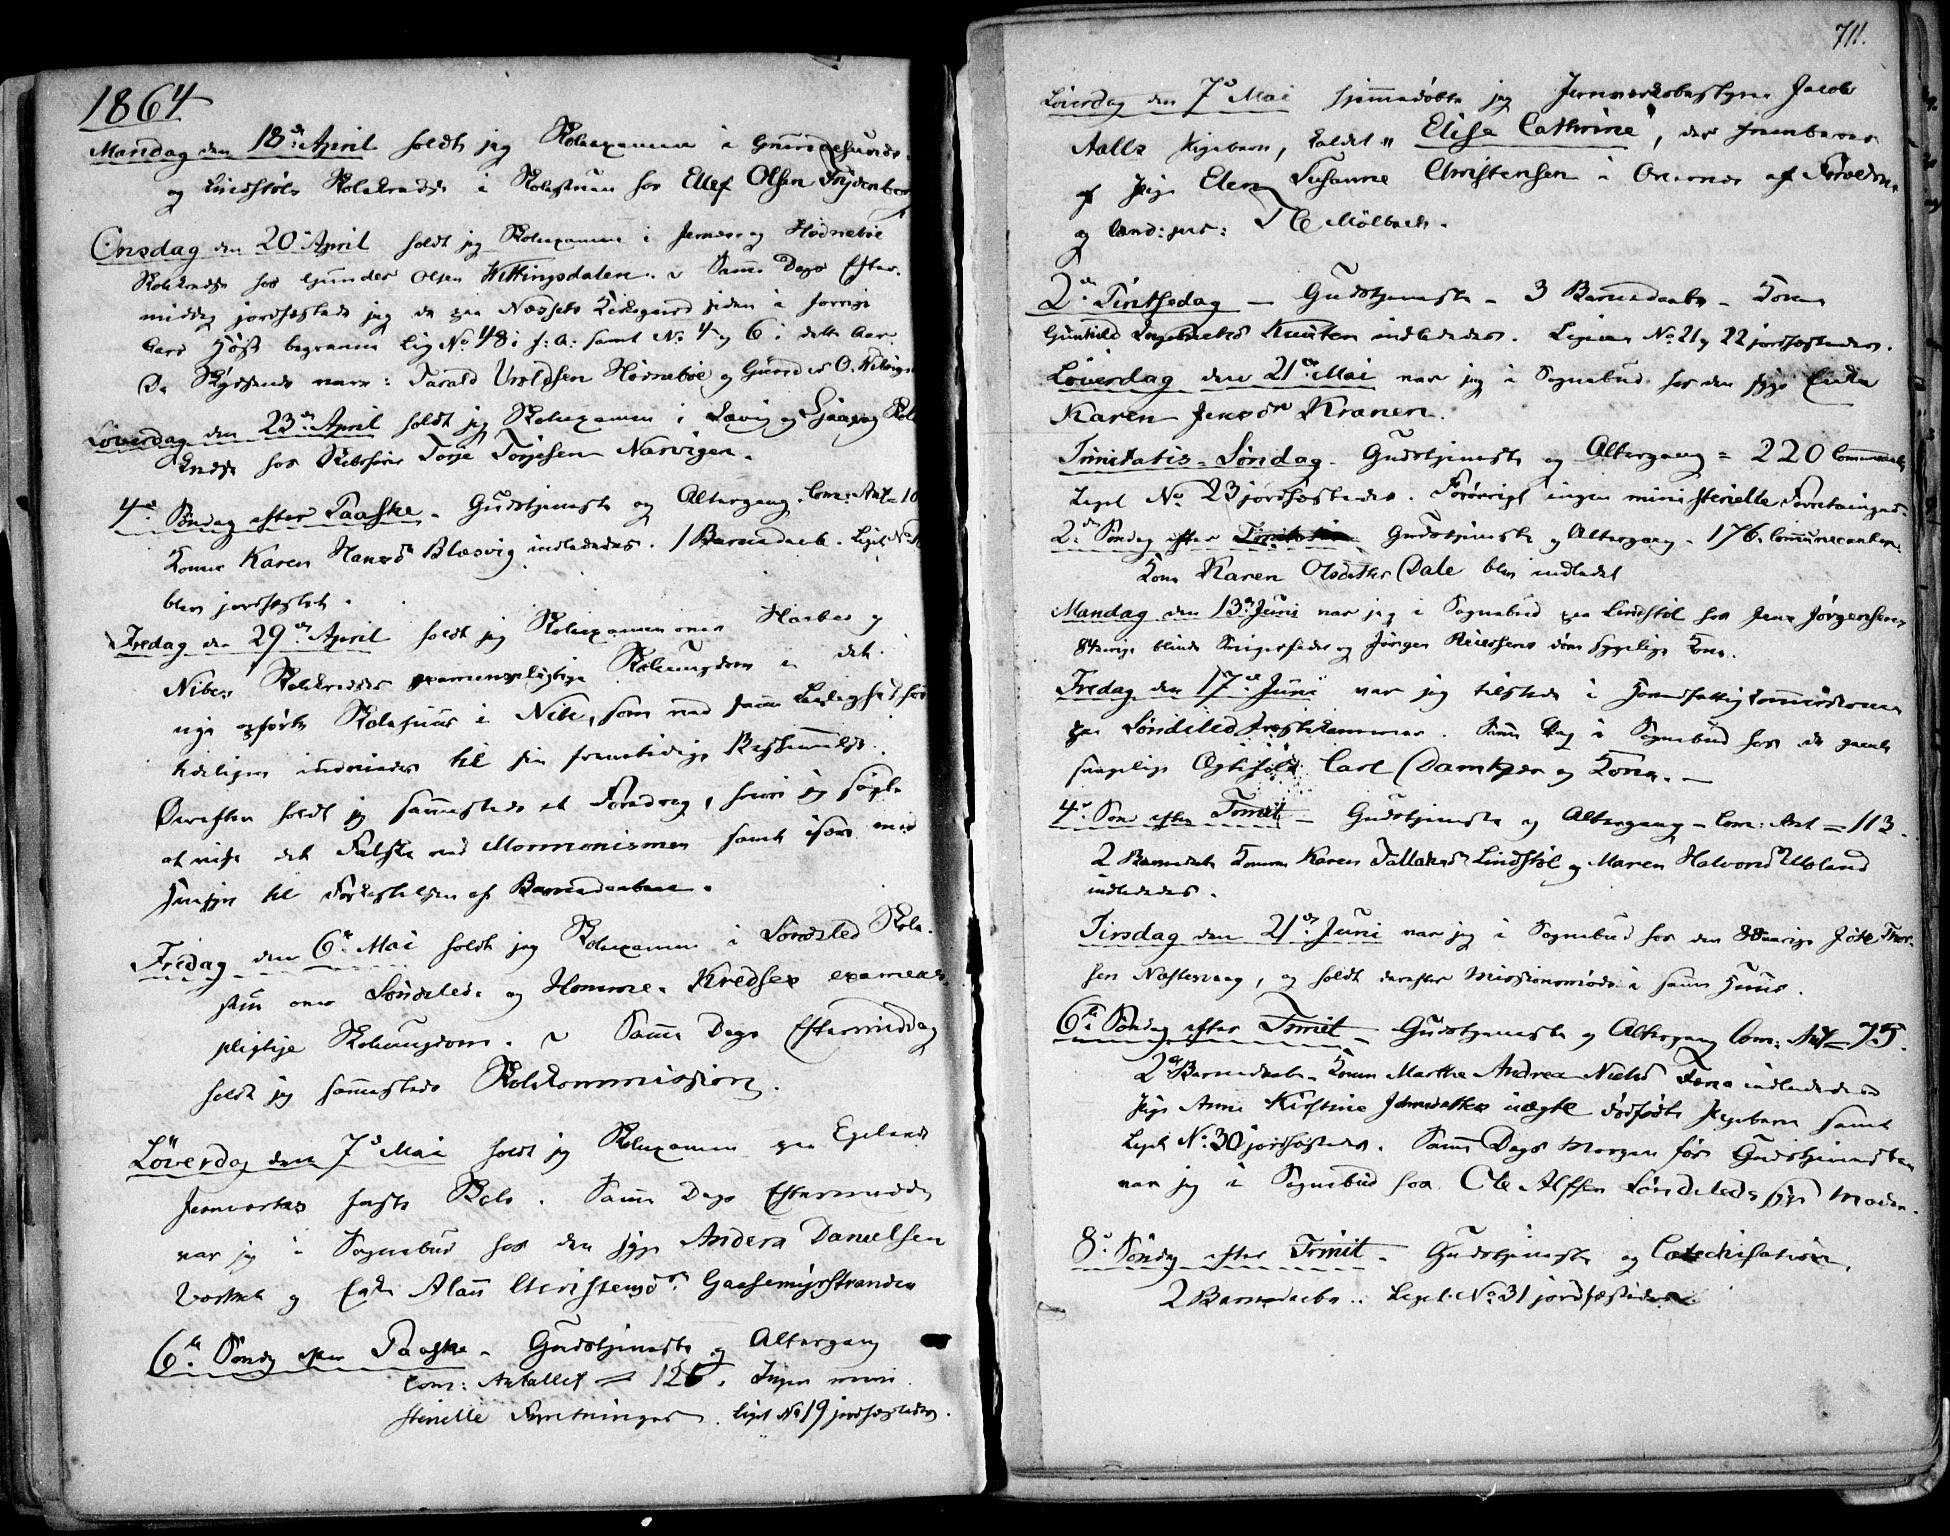 1864
Mandag den 18de April holdt jeg Skoleexamen i
og Lindstøls Skolekreds i Skolestuen hos Ellef Olsen Frydenborg
Onsdag den 20de April holdt jeg Skoleexamen i Jernes og Hødnebøe
Skolekreds hos Gunder Olsen Wittingsdalen. ~ Samme Dags Efter-
middag jordfæstede jeg de paa Næssets Kirkegaard siden i forrige
Aars Høst begravne Lig No 48 i f: A: samt No 4 og 6 i dette Aar.
De vare: Tarald Hødnebøe og Gunder O.
Løverdag den 23de April holdt jeg Skoleexamen i Lavig og
Kreds hos Terje Terjesen Narvigen.
4de Søndag efter Paaske - Gudstjeneste og Altergang. Com: Ant = 10
Konen Karen Hansdr Blæsvig indlededes. 1 Barnedaab. Liget No
blev jordfæstet.
Fredag den 29de April holdt jeg Skoleexamen over og
Nibes Skolekredses examenspligtige Skoleungdom i det
nye opførte Skolehuus i Nibe, som ved samme Leilighed
tideligen indviedes til sin fremtidige Bestemmelse.
Derefter holdt jeg sammesteds et Foredrag, hvori jeg søgte
at vise det Falske ved Mormonismen samt især med
Hensyn til Forkastelsen af Barnedaaben.
Fredag den 6te Mai holdt jeg Skoleexamen i Søndeled Skole-
stue over Søndeleds og Homme- Kredses examens-
pligtige Skoleungdom. ~ Samme Dags Eftermiddag
holdt jeg sammesteds Skolekommission.
Løverdag den 7de Mai holdt jeg Skoleexamen paa Egelands
Jernverks faste Skole. Samme Dags Eftermiddag
var jeg i Sognebud hos den syge Anders Danielsen
og Enke Christensdr Gaasemyrstranden
6te Søndag efter Paaske - Gudstjeneste og Altergang
Com: Antallet = 126. Ingen mini-
sterielle Forretninger. Liget No 19 jordfæstedes.
711.
Løverdag den 7de Mai hjemmedøbte jeg Jernverksbestyrer Jacob
Aalls Pigebarn, kaldet "Elise Cathrine", der frembares
af Pige Elen Susanne Christensen i af Forældrene
og Cand: jur: Mölbach.
2den Pintsedag - Gudstjeneste - 3 Barnedaab - Konen
Gunhild indledtes. Ligene No 21 og 22 jordfæstedes.
Løverdag den 21de Mai var jeg i Sognebud hos den syge Enke
Karen Jensdr Kranen.
Trinitatis-Søndag - Gudstjeneste og Altergang = 220 Communicanter
Liget No 23 jordfæstedes. Forøvrigt ingen ministerielle Forretninger.
2den Søndag efter Gudstjeneste og Altergang - 176 Communicanter.
Kone Karen Olsdatter Dale blev indledet
Mandag den 13de Juni var jeg i Sognebud paa Lindstøl hos Jens Jørgensens
84aarige blinde Svigerfader og Jørgen Reierssens døve sygelige Kone.
Fredag den 17de Juni var jeg tilstede i
paa Søndeled Samme Dag i Sognebud hos de gamle
svagelige Ægtefolk Carl Damkjær og Kone. -
4de Søn efter Trinit - Gudstjeneste og Altergang - Com: Ant = 113.
2 Barnedaab Konerne Karen Tallaksdr Lindstöl og Maren Halvorsdr Ulvland
indledtes.
Tirsdag den 21de Juni var jeg i Sognebud hos den aarige
sen, og holdt derefter Missionsmøde i samme Huus.
6te Søndag efter Trinit - Gudstjeneste og Altergang Com: Ant = 75.
2 Barnedaab - Konen Marthe Andrea Nielsdr indledtes
Pige Anne Kirstine uægte dødfødte Pigebarn samt
Liget No 30 jordfæstedes. Samme Dags Morgen før Gudstjenesten
var jeg i Sognebud hos Ole Alfsen Søndeleds syge Moder.
8de Søndag efter Trinit - Gudstjeneste og Catechisation.
2 Barnedaab. Liget No 31 jordfæstedes